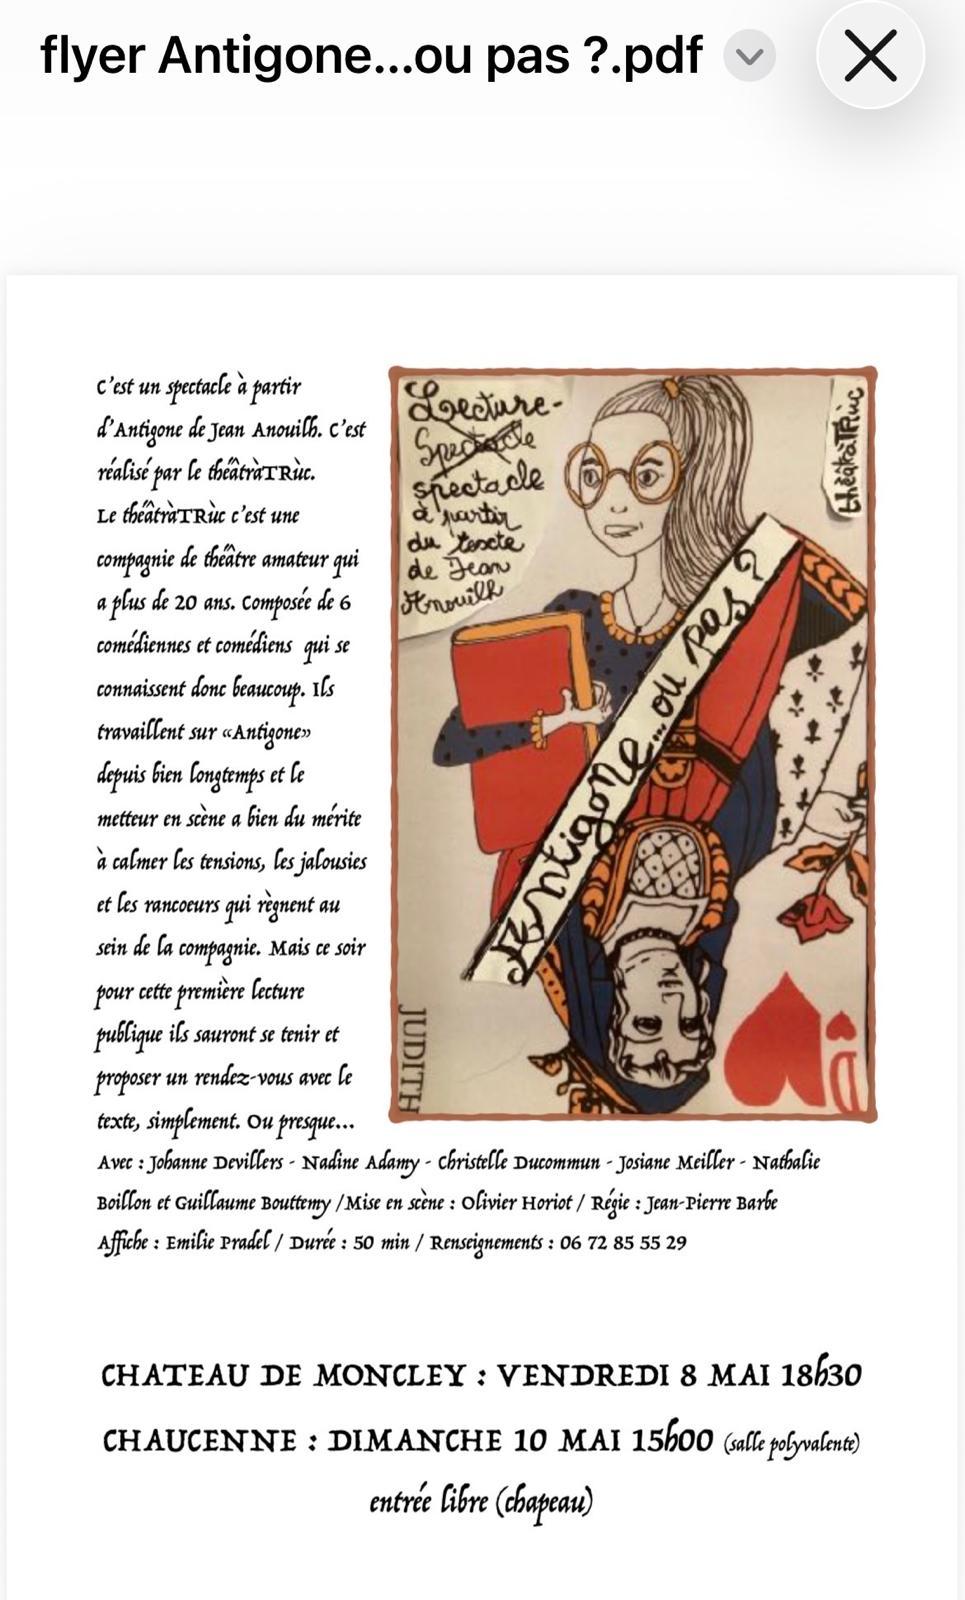 flyer Antigone...ou pas ?.pdf
C'est un spectacle à partir
d'Antigone de Jean Anouilh. C'est
réalisé par le théâtràTRùc.
Le théâtràTRùc c'est une
compagnie de théâtre amateur qui
a plus de 20 ans. Composée de 6
comédiennes et comédiens qui se
connaissent donc beaucoup. Ils
travaillent sur «Antigone»
depuis bien longtemps et le
metteur en scène a bien du mérite
à calmer les tensions, les jalousies
et les rancoeurs qui règnent au
sein de la compagnie. Mais ce soir
pour cette première lecture
publique ils sauront se tenir et
proposer un rendez-vous avec le
texte, simplement. Ou presque...
Lecture-
Spectacle
spectacle
à partir
du texte
de Jean
Anouilh
théâtràTRùc
Antigone...ou pas?
JUDITH
D
Avec : Johanne Devillers - Nadine Adamy - Christelle Ducommun - Josiane Meiller - Nathalie
Boillon et Guillaume Bouttemy /Mise en scène : Olivier Horiot / Régie : Jean-Pierre Barbe
Affiche : Emilie Pradel / Durée : 50 min / Renseignements : 06 72 85 55 29
CHATEAU DE MONCLEY : VENDREDI 8 MAI 18h30
CHAUCENNE : DIMANCHE 10 MAI 15h00 (salle polyvalente)
entrée libre (chapeau)